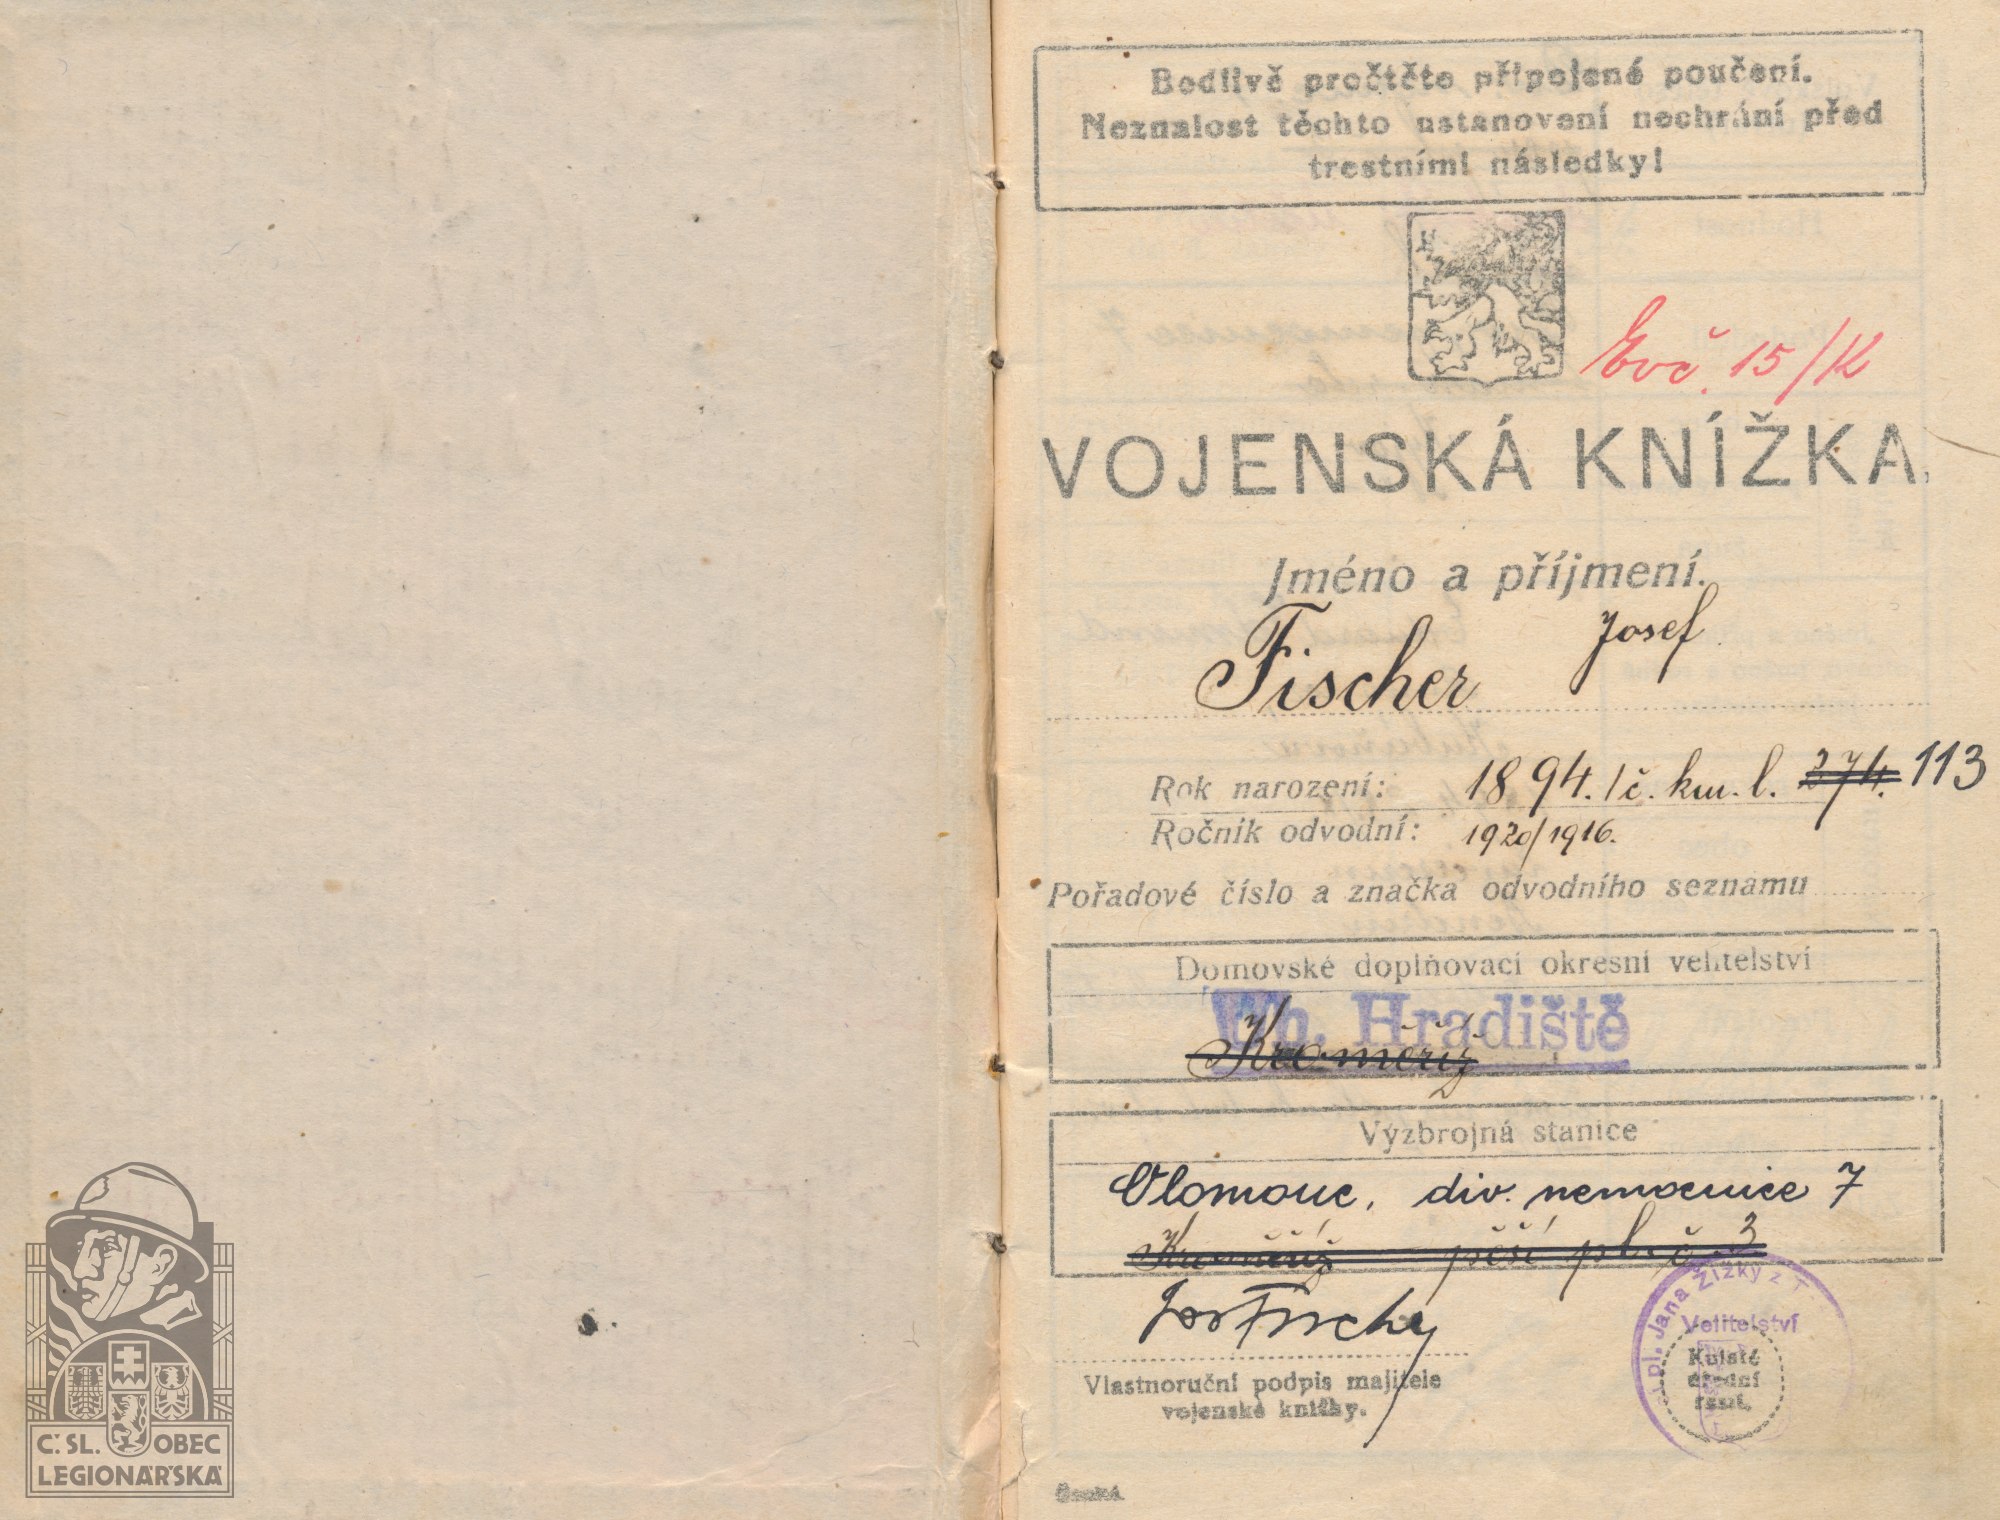 Bedlivě pročtěte připojené poučení.
Neznalost těchto ustanovení nechrání před
trestními následky!
Evč. 15/K
VOJENSKÁ KNÍŽKA.
Jméno a příjmení.
Fischer Josef
Rok narození: 1894. /č. km. l. 274. 113
Ročník odvodní: 1920/1916.
Pořadové číslo a značka odvodního seznamu
Domovské doplňovací okresní velitelství
Uh. Hradiště
Kroměříž
Výzbrojná stanice
Olomouc, div. nemocnice 7
Kroměříž pěší pl. č. 3
Jos Fischer
Vlastnoruční podpis majitele
vojenské knížky.
pl. Jana Žižky z T
Velitelství
Kulaté
úřední
raz.
Česká.
Č. SL. OBEC
LEGIONÁŘSKÁ